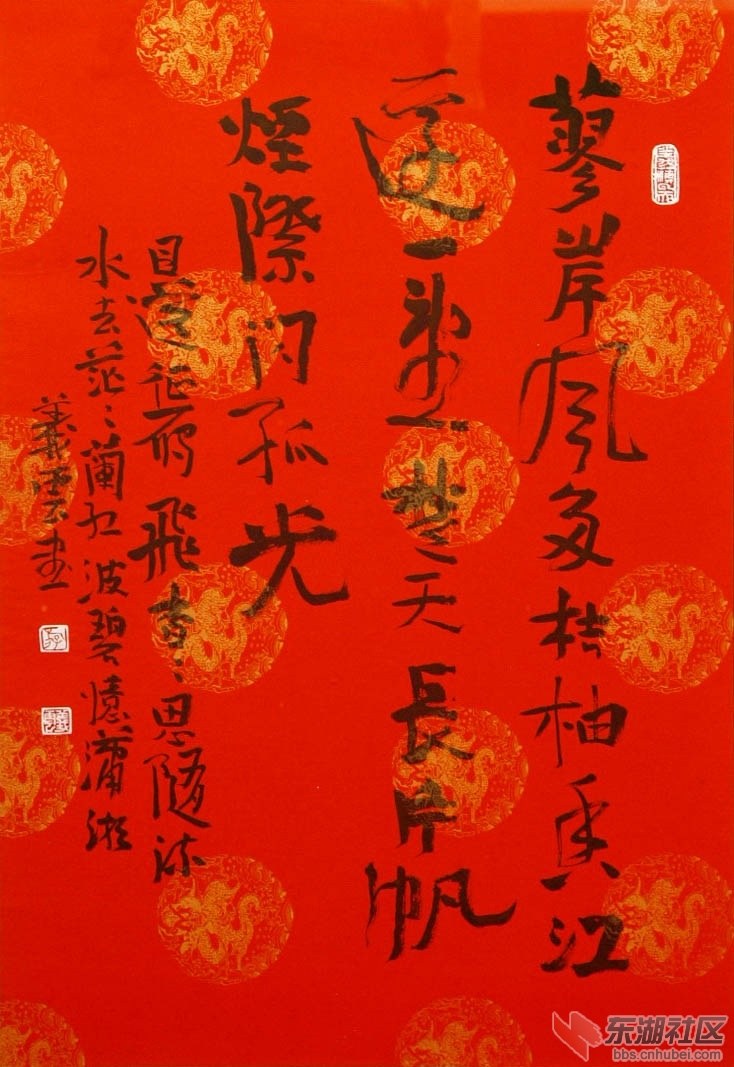 蓼岸風多桔柚香江
邊一望楚天長片帆
煙際闪孤光
目送征鴻飛杳〻思隨流
水去茫〻蘭紅波碧憶瀟湘
義雲書
东湖社区
bbs.cnhubei.com